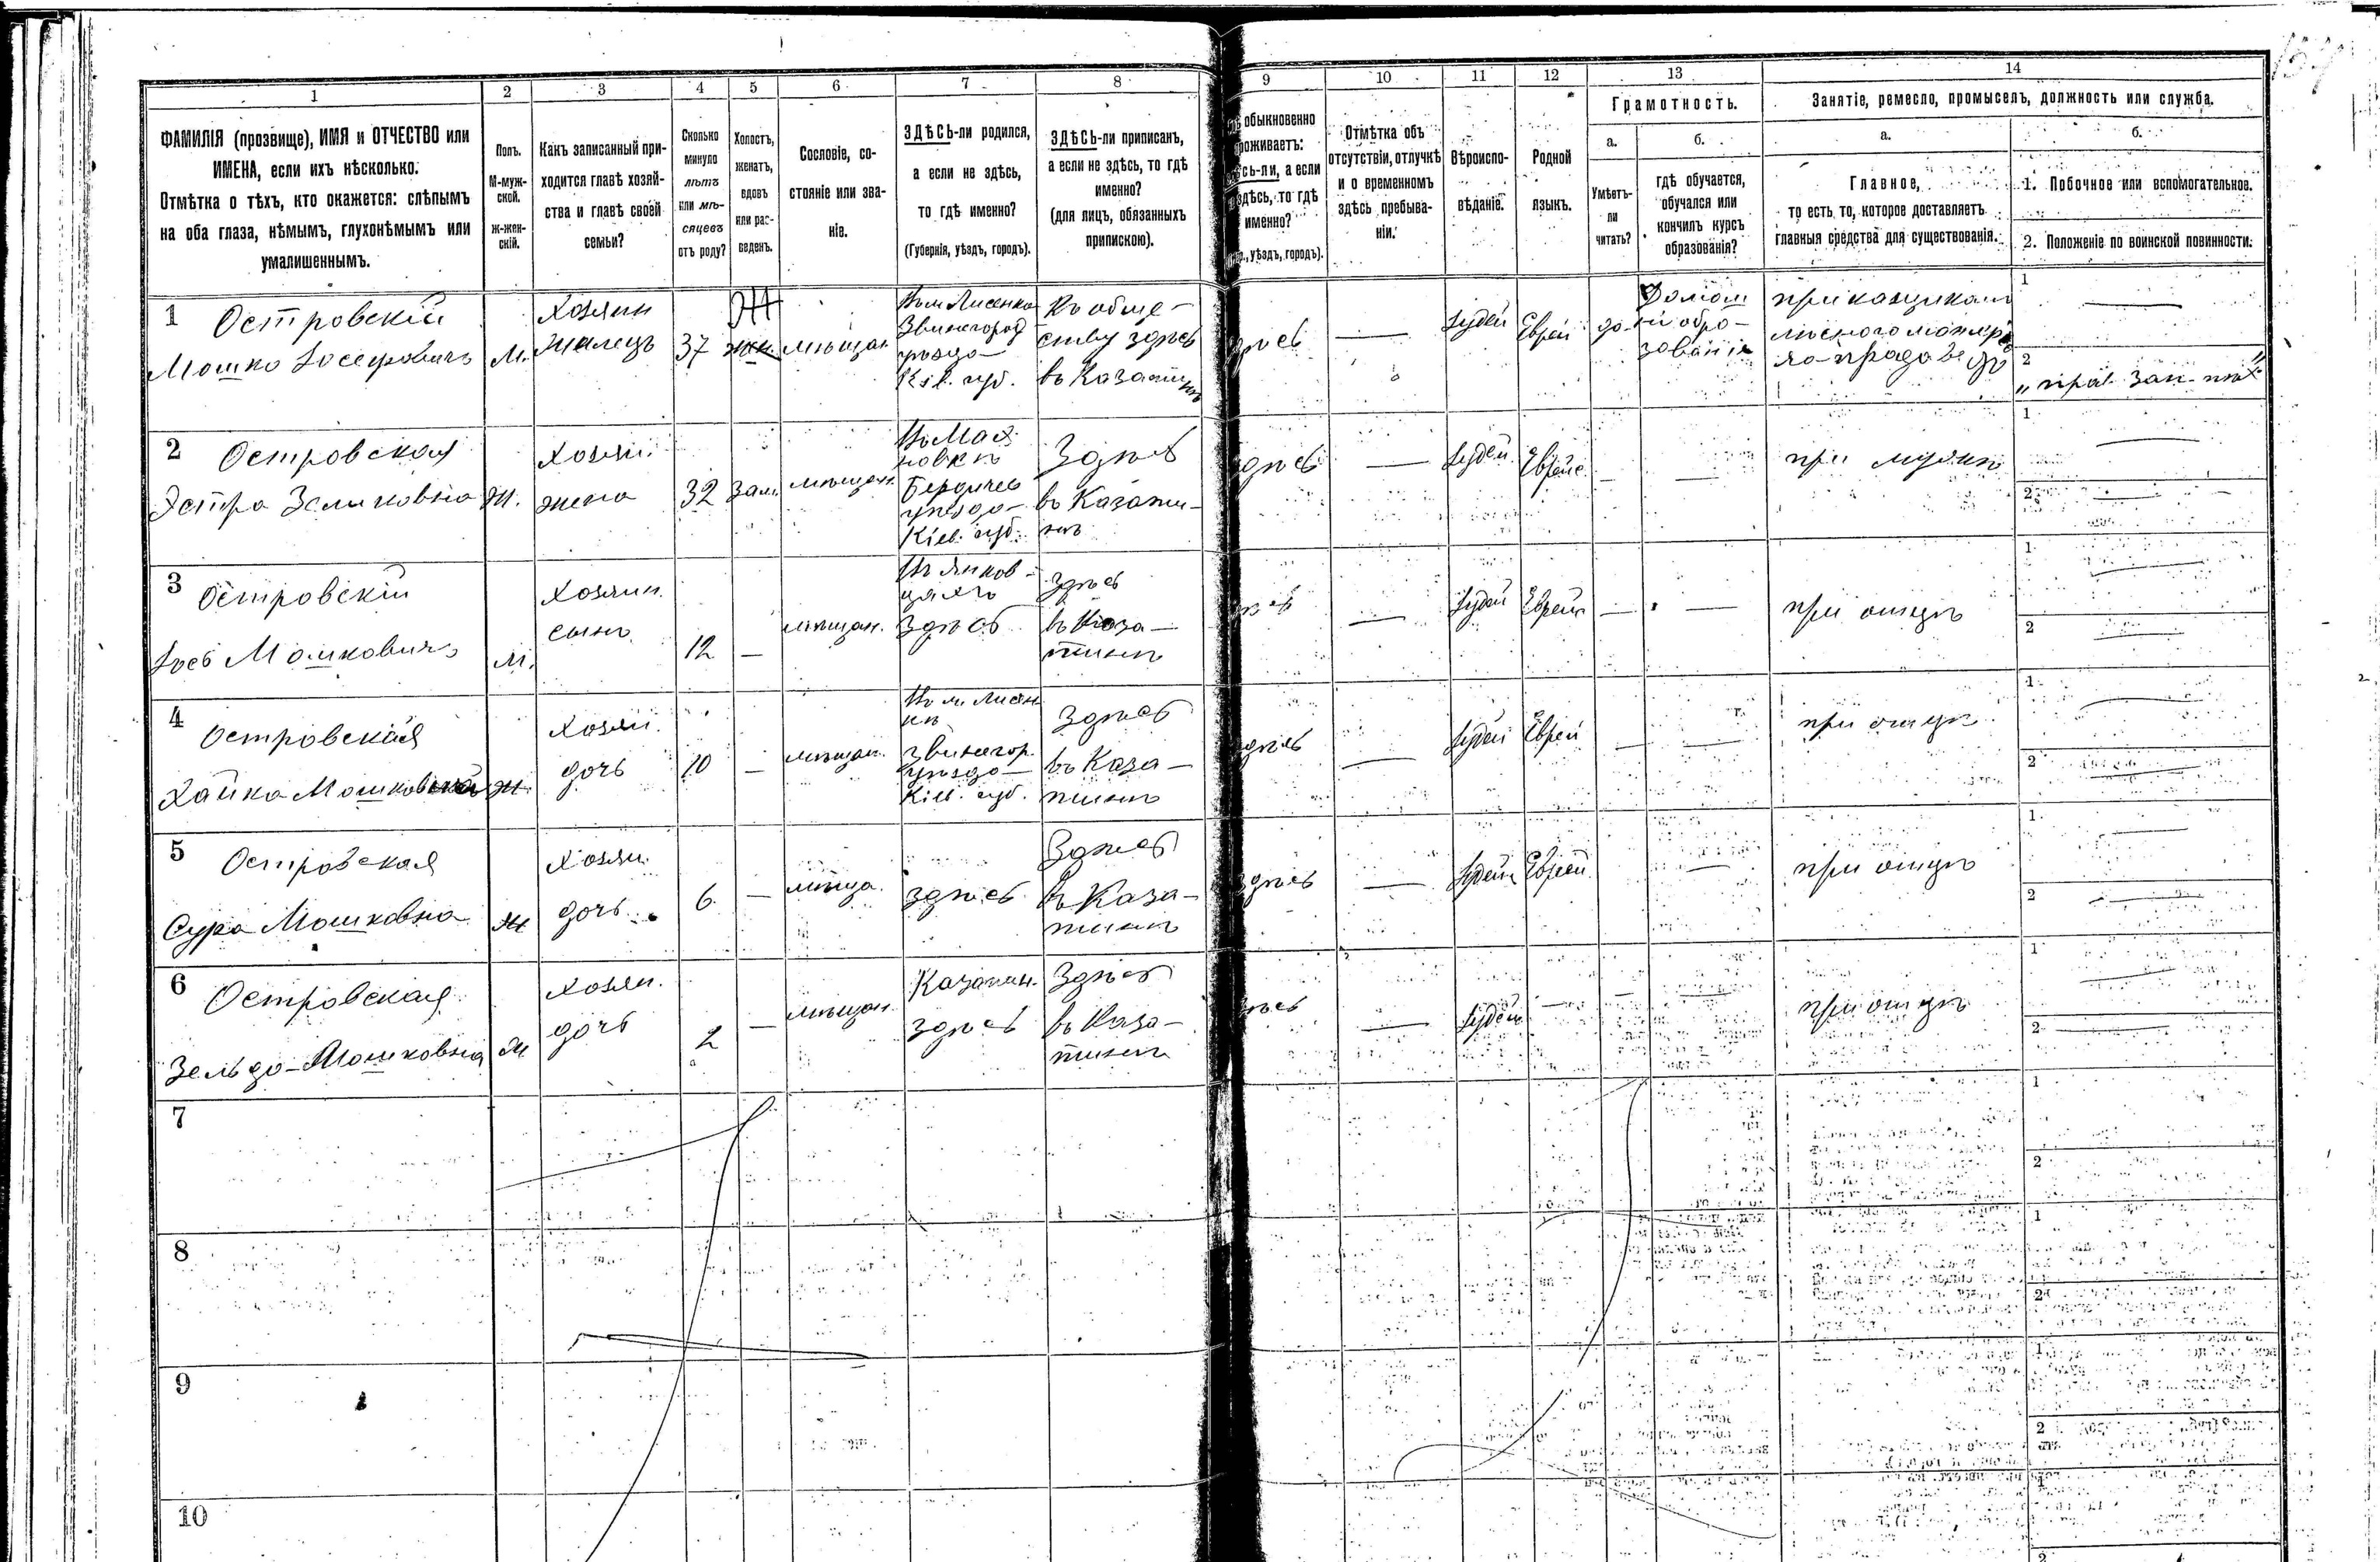 1 2 3 4 5 6 7 8 9 10 11 12 13 14
ФАМИЛІЯ (прозвище), ИМЯ и ОТЧЕСТВО или
ИМЕНА, если ихъ нѣсколько.
Отмѣтка о тѣхъ, кто окажется: слѣпымъ
на оба глаза, нѣмымъ, глухонѣмымъ или
умалишеннымъ.
Полъ.
М-муж-
ской.
ж-жен-
скій.
Какъ записанный при-
ходится главѣ хозяй-
ства и главѣ своей
семьи?
Сколько
минуло
лѣтъ
или мѣ-
сяцевъ
отъ роду?
Холостъ,
женатъ,
вдовъ
или раз-
веденъ.
Сословіе, со-
стояніе или зва-
ніе.
ЗДѢСЬ-ли родился,
а если не здѣсь,
то гдѣ именно?
(Губернія, уѣздъ, городъ).
ЗДѢСЬ-ли приписанъ,
а если не здѣсь, то гдѣ
именно?
(для лицъ, обязанныхъ
припискою).
обыкновенно
роживаетъ:
сь-ли, а если
здѣсь, то гдѣ
именно?
уѣздъ, городъ).
Отмѣтка объ
отсутствіи, отлучкѣ
и о временномъ
здѣсь пребыва-
ніи.
Вѣроиспо-
вѣданіе.
Родной
языкъ.
Грамотность.
а.
Умѣетъ-
ли
читать?
б.
гдѣ обучается,
обучался или
кончилъ курсъ
образованія?
Занятіе, ремесло, промыселъ, должность или служба.
а.
Главное,
то есть то, которое доставляетъ
главныя средства для существованія.
б.
1. Побочное или вспомогательное.
2. Положеніе по воинской повинности.
1 Островскій
Мошко Іосефовичъ
М.
Хозяин
37
Ж
мѣщан
Звинегород
уѣзда
Кіев. губ.
Къ обще-
ству здѣсь
въ Казатинѣ
Іудей
Еврей
да
зованія
приказчикомъ
1
2
2 Островская
Эстра Зеликовна
Ж.
Хозяи.
жена
32
Зам.
мѣщан.
Въ Мах
новкѣ
Бердичев
уѣзда
Кіев. губ.
Здѣсь
въ Казати-
нѣ
здѣсь
Іудей
Еврейс
при мужѣ
1
2
3 Островскій
Іось Мошковичъ
М.
Хозяин.
сынъ
12
мѣщан.
здѣсь
здѣсь
въ Каза-
тинѣ
Іудей
Еврейс
при отцѣ
1
2
4 Островская
Хайка
Ж
Хозяи.
дочь
10
мѣщан.
Звинегор.
уѣзда
Кіев. губ.
Здѣсь
въ Каза-
тинѣ
здѣсь
Іудей
Еврей
при отцѣ
1
2
5 Островская
Сура Мошковна
Ж
Хозяи.
дочь
6
мѣща.
здѣсь
Здѣсь
въ Каза-
тинѣ
здѣсь
Іудей
Еврей
при отцѣ
1
2
6 Островская
Зельда Мошковна
Ж
Хозяи.
дочь
2
мѣщан
Казатин.
здѣсь
Здѣсь
въ Каза-
тинѣ
Іудей
при отцѣ
1
2
7
1
2
8
1
2
9
1
2
10